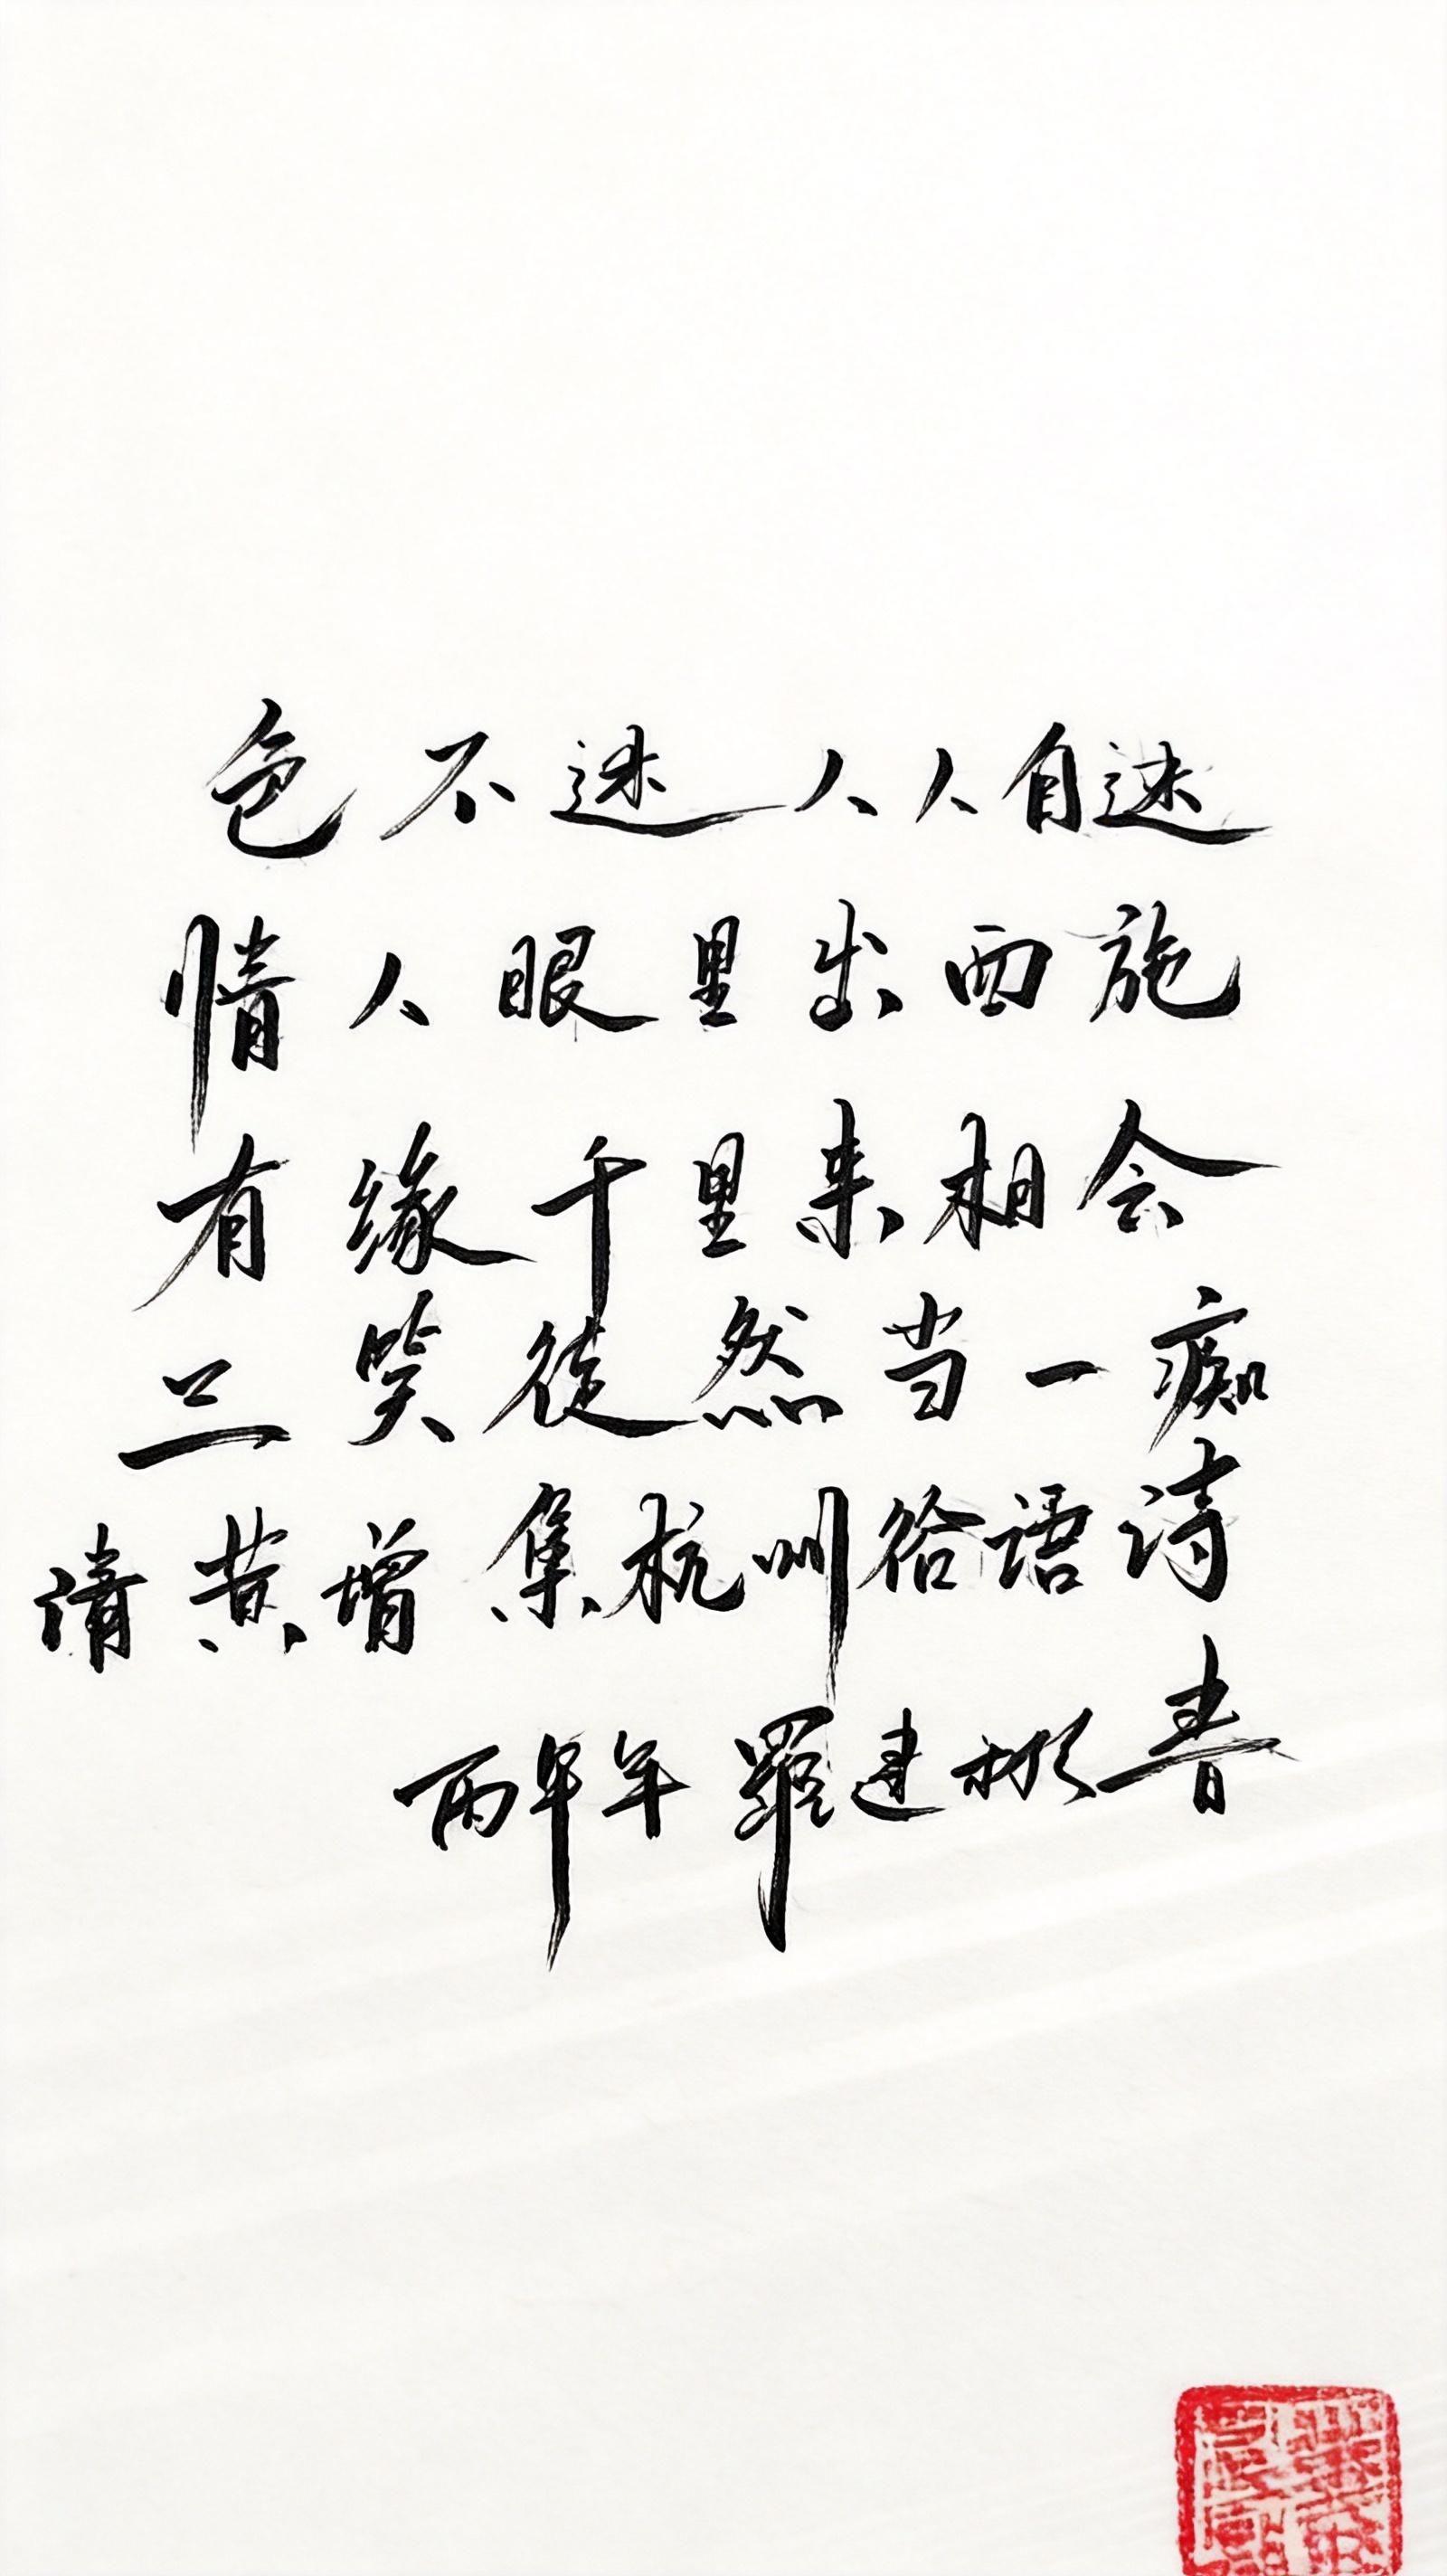 色不迷人人自迷
情人眼里出西施
有缘千里来相会
三笑徒然当一痴
清黄增集杭州俗语诗
丙午年罗建 书